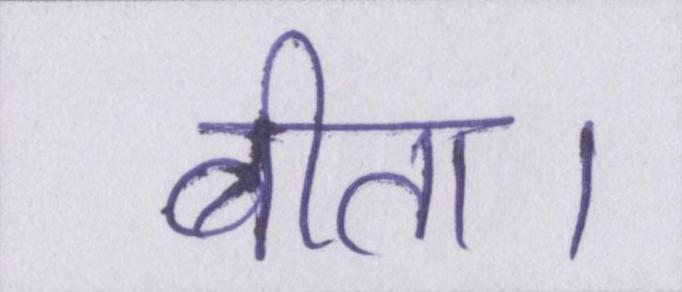 बीता।